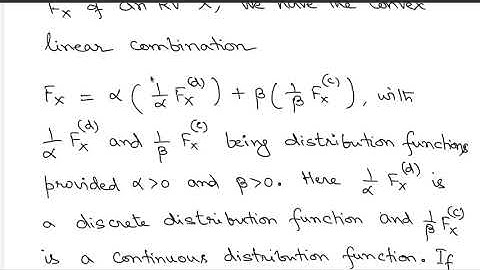 F_X of an RV X, we have the convex
linear combination
F_X = α ( 1/α F_X^(d) ) + β ( 1/β F_X^(c) ), with
1/α F_X^(d) and 1/β F_X^(c) being distribution functions
provided α>0 and β>0. Here 1/α F_X^(d) is
a discrete distribution function and 1/β F_X^(c)
is a continuous distribution function. If